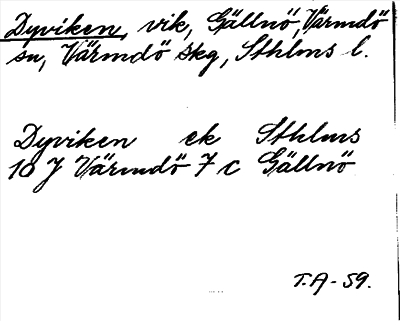 Dyviken, vik, Gällnö, Värmdö
sn, Värmdö skg, Sthlms l.
Dyviken ek Sthlms
10 J Värmdö 7 c Gällnö
T.A - 59.